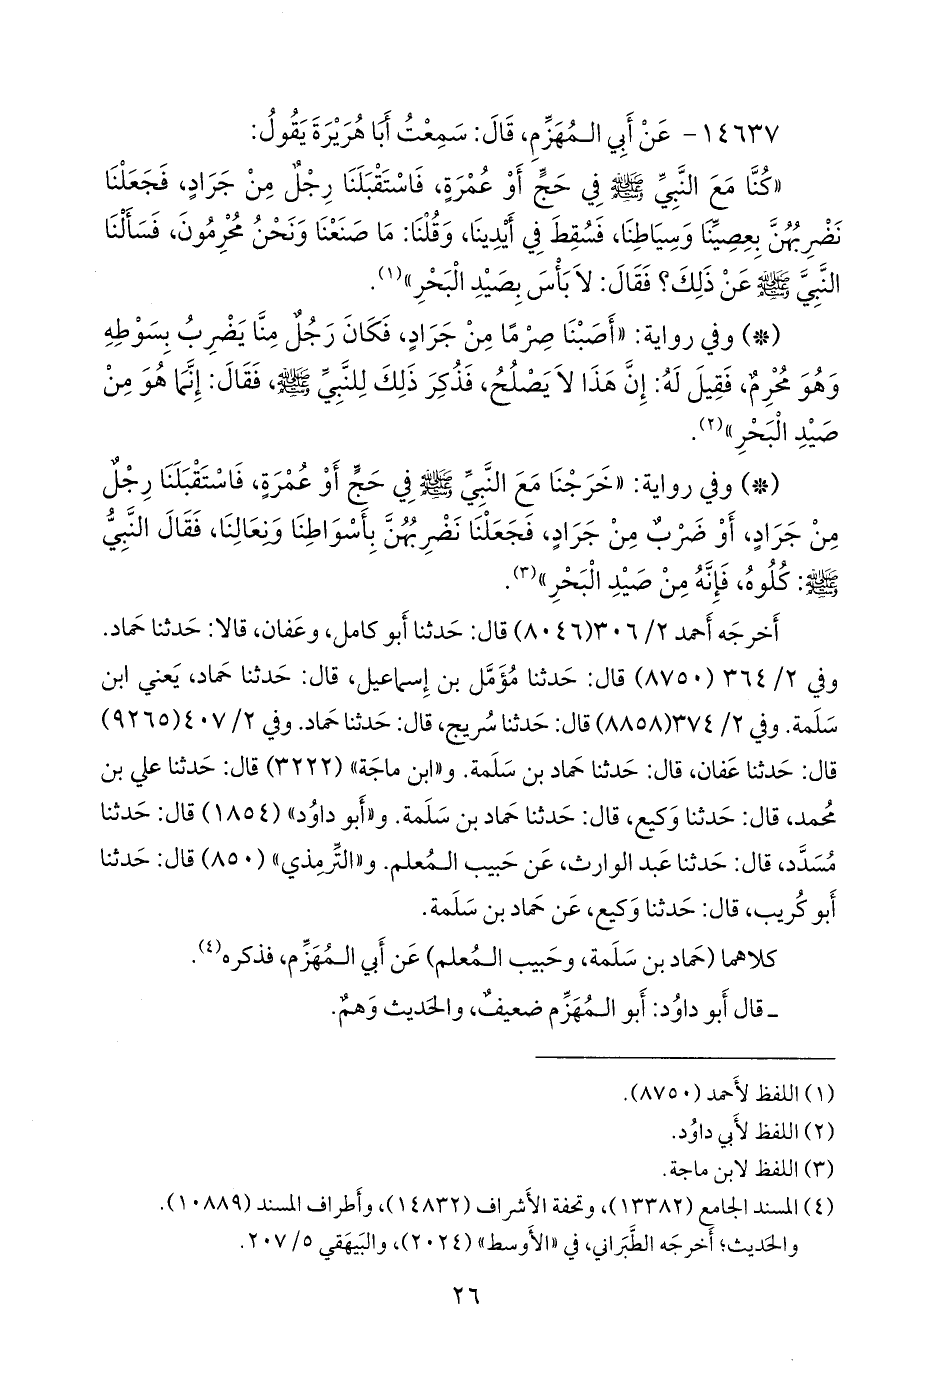 ١٤٦٣٧- عَنْ أَبِي الـمُهَزِّمِ، قَالَ: سَمِعْتُ أَبَا هُرَيْرَةَ يَقُولُ:
«كُنَّا مَعَ النَّبِيِّ ﷺ فِي حَجٍّ أَوْ عُمْرَةٍ، فَاسْتَقْبَلَنَا رِجْلٌ مِنْ جَرَادٍ، فَجَعَلْنَا
نَضْرِبُهُنَّ بِعِصِيِّنَا وَسِيَاطِنَا، فَسُقِطَ فِي أَيْدِينَا، وَقُلْنَا: مَا صَنَعْنَا وَنَحْنُ مُحْرِمُونَ، فَسَأَلْنَا
النَّبِيَّ ﷺ عَنْ ذَلِكَ؟ فَقَالَ: لاَ بَأْسَ بِصَيْدِ الْبَحْرِ»(١).
(*) وفي رواية: «أَصَبْنَا صِرْمًا مِنْ جَرَادٍ، فَكَانَ رَجُلٌ مِنَّا يَضْرِبُ بِسَوْطِهِ
وَهُوَ مُحْرِمٌ، فَقِيلَ لَهُ: إِنَّ هَذَا لاَ يَصْلُحُ، فَذُكِرَ ذَلِكَ لِلنَّبِيِّ ﷺ، فَقَالَ: إِنَّمَا هُوَ مِنْ
صَيْدِ الْبَحْرِ»(٢).
(*) وفي رواية: «خَرَجْنَا مَعَ النَّبِيِّ ﷺ فِي حَجٍّ أَوْ عُمْرَةٍ، فَاسْتَقْبَلَنَا رِجْلٌ
مِنْ جَرَادٍ، أَوْ ضَرْبٌ مِنْ جَرَادٍ، فَجَعَلْنَا نَضْرِبُهُنَّ بِأَسْوَاطِنَا وَنِعَالِنَا، فَقَالَ النَّبِيُّ
ﷺ: كُلُوهُ، فَإِنَّهُ مِنْ صَيْدِ الْبَحْرِ»(٣).
أَخرجَه أَحمد ٢/ ٣٠٦(٨٠٤٦) قال: حَدثنا أَبو كامل، وعَفان، قالا: حَدثنا حَماد.
وفي ٢/ ٣٦٤ (٨٧٥٠) قال: حَدثنا مُؤَمَّل بن إِسماعيل، قال: حَدثنا حَماد، يَعني ابن
سَلَمة. وفي ٢/ ٣٧٤(٨٨٥٨) قال: حَدثنا سُريج، قال: حَدثنا حَماد. وفي ٢/ ٤٠٧(٩٢٦٥)
قال: حَدثنا عَفان، قال: حَدثنا حَماد بن سَلَمة. و«ابن ماجَة» (٣٢٢٢) قال: حَدثنا علي بن
مُحمد، قال: حَدثنا وَكيع، قال: حَدثنا حَماد بن سَلَمة. و«أَبو داوُد» (١٨٥٤) قال: حَدثنا
مُسَدَّد، قال: حَدثنا عَبد الوارث، عَن حَبيب الـمُعلم. و«التِّرمِذي» (٨٥٠) قال: حَدثنا
أَبو كُريب، قال: حَدثنا وَكيع، عَن حَماد بن سَلَمة.
كلاهما (حَماد بن سَلَمة، وحَبيب الـمُعلم) عَن أَبي الـمُهَزِّم، فذكره(٤).
ـ قال أَبو داوُد: أَبو الـمُهَزِّم ضعيفٌ، والحَديث وَهمٌ.
(١) اللفظ لأَحمد (٨٧٥٠).
(٢) اللفظ لأَبي داوُد.
(٣) اللفظ لابن ماجة.
(٤) المسند الجامع (١٣٣٨٢)، وتحفة الأَشراف (١٤٨٣٢)، وأَطراف المسند (١٠٨٨٩).
والحَديث؛ أَخرجَه الطَّبَراني، في «الأَوسط» (٢٠٢٤)، والبَيهَقي ٥/ ٢٠٧.
٢٦